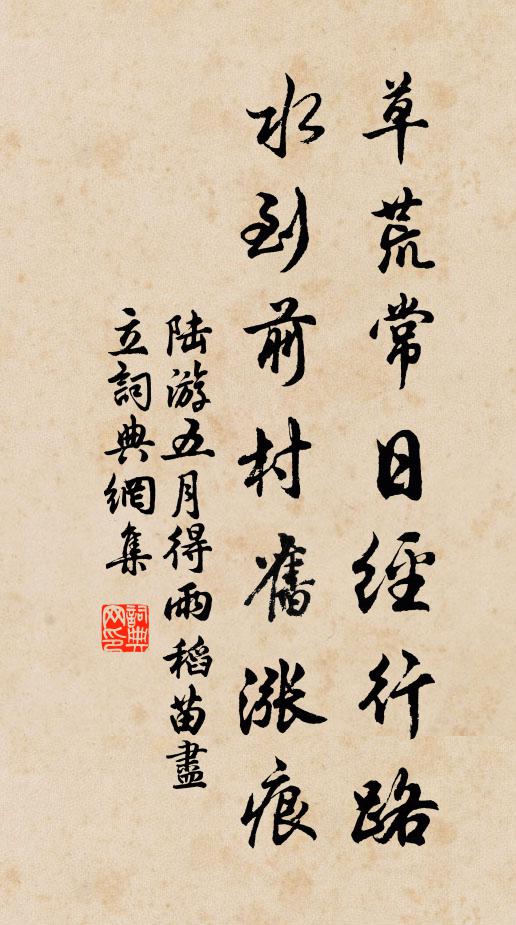 草荒常日經行路
水到前村舊漲痕
陆游五月得雨稻苗盡
立詞典網集
詞典
网印